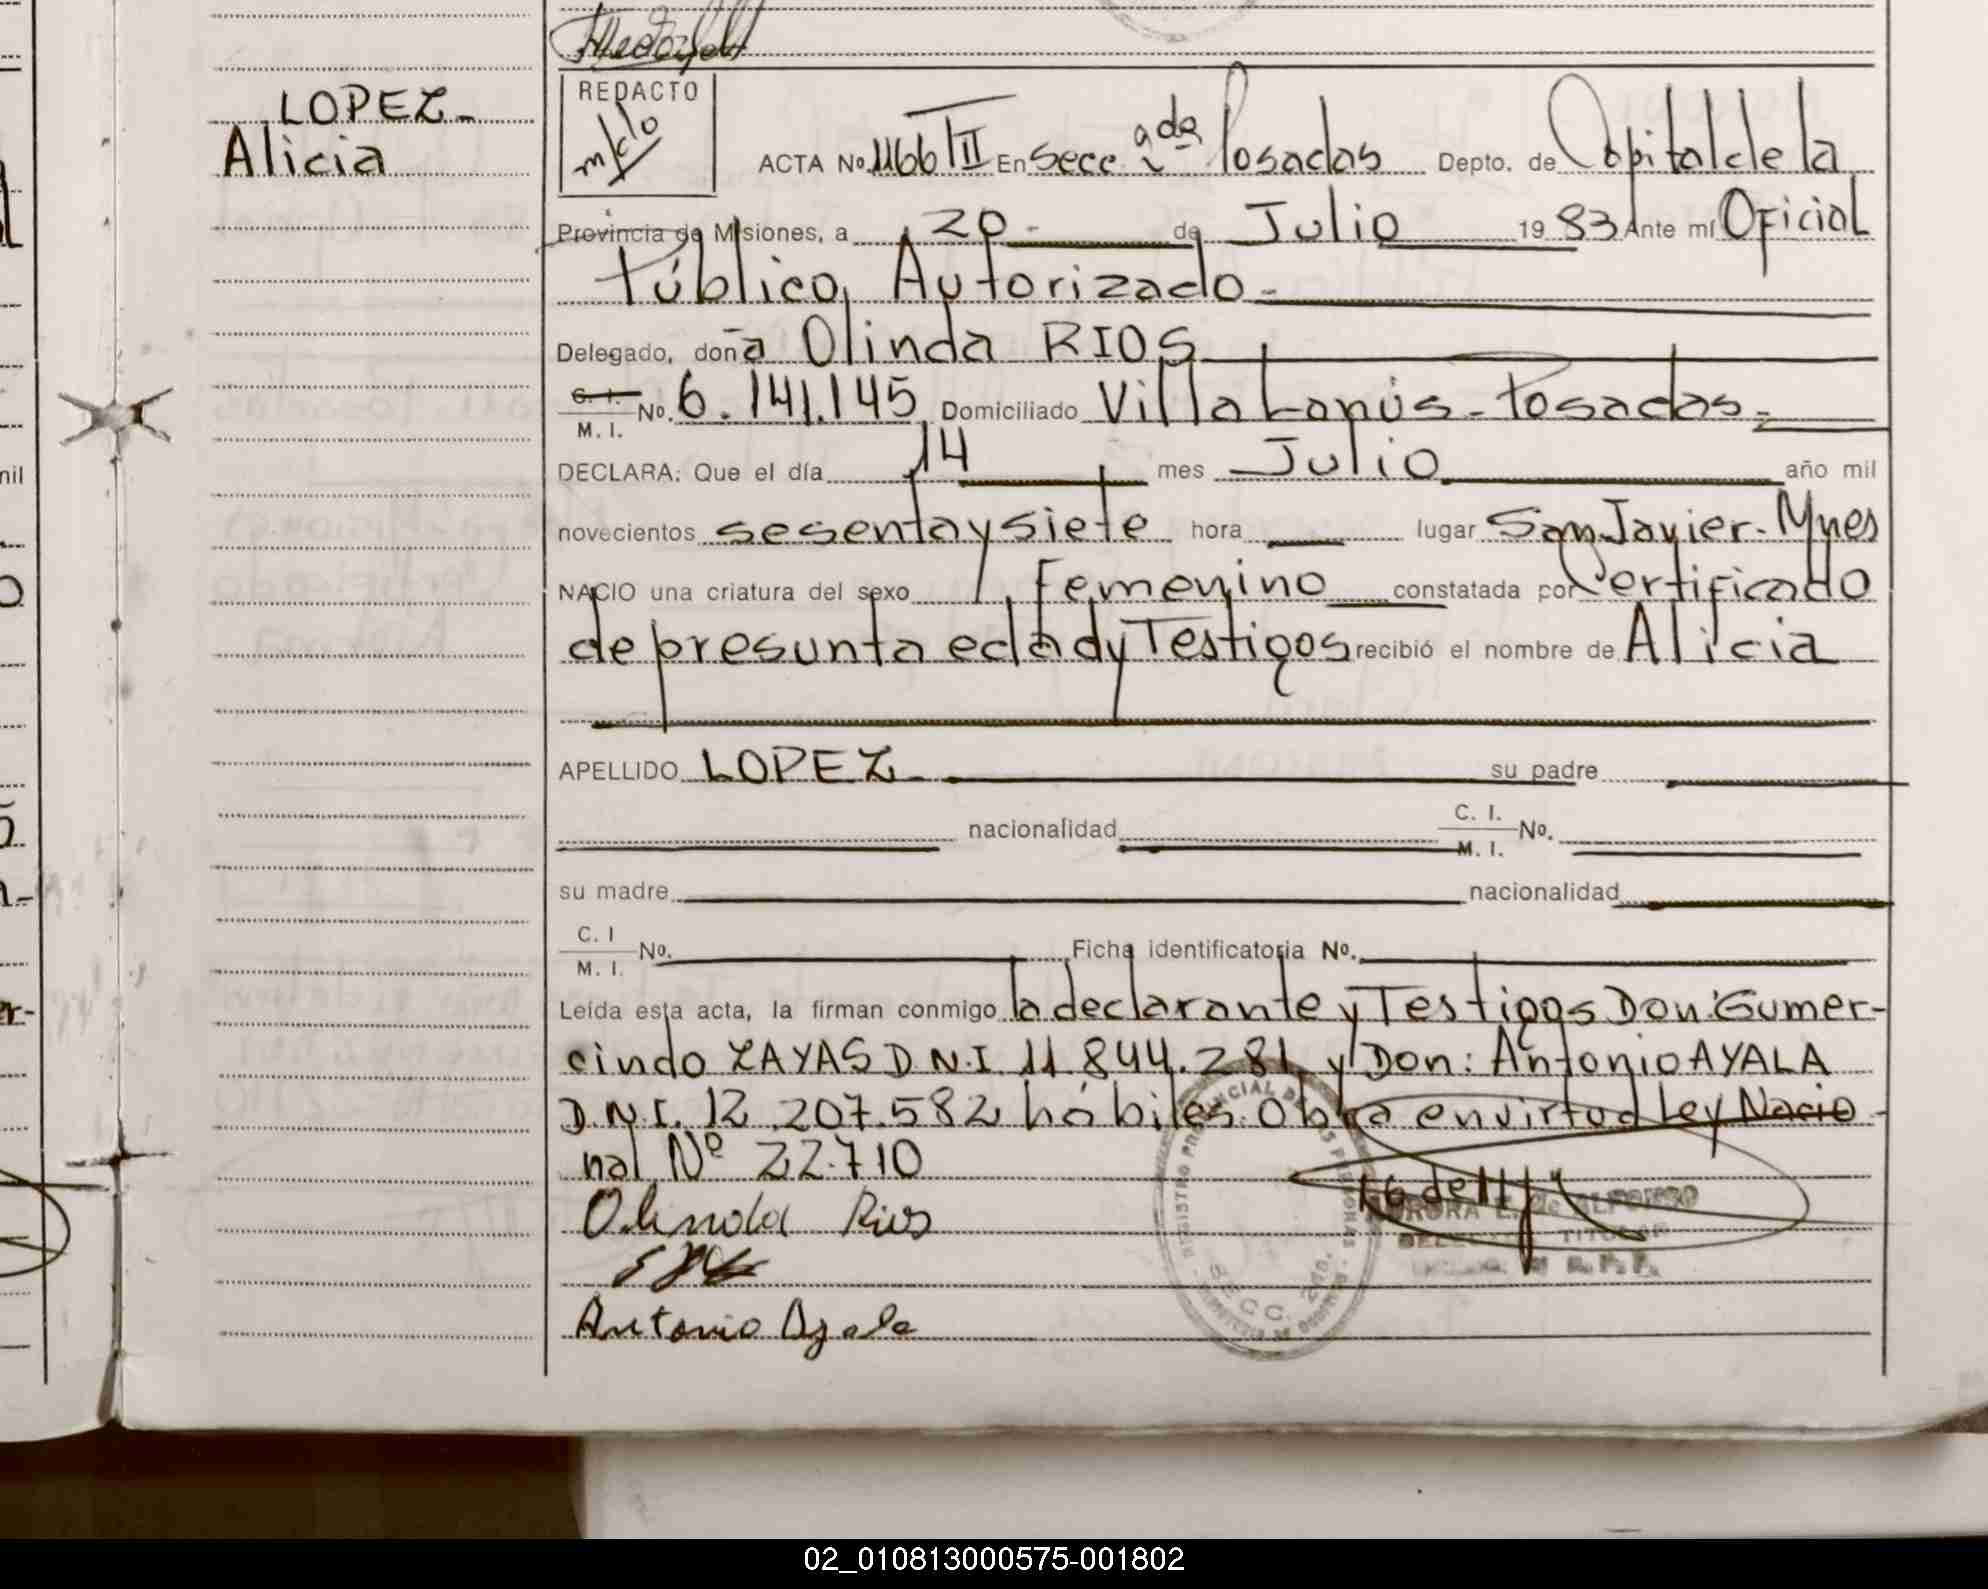 LOPEZ-
Alicia
REDACTO
ACTA No. 1166 TII En Secc 2ada Posadas Depto. de Capital de la
Provincia de Misiones, a 20- de Julio 1983 Ante mí Oficial
Público, Autorizado-
Delegado, doña Olinda RIOS
C. I.
M. I. No. 6.141.145 Domiciliado Villa Lanús-Posadas-
DECLARA: Que el día 14 mes Julio año mil
novecientos sesenta y siete hora lugar San Javier-Mnes
NACIO una criatura del sexo Femenino constatada por Certificado
de presunta edad y Testigos recibió el nombre de Alicia
APELLIDO LOPEZ- su padre
nacionalidad C. I.
M. I. No.
su madre nacionalidad
C. I
M. I. No. Ficha identificatoria No.
Leída esta acta, la firman conmigo la declarante y Testigos Don: Gumer-
cindo ZAYAS D.N.I. 11.844.281 y Don: Antonio AYALA
D.N.I. 12.207.582 hábiles. Obra en virtud Ley Nacio-
nal Nº 22.710
Olinda Rios
Antonio Ayala
AURORA E. de ALFONSO
TITULAR
R.P.P.
REGISTRO PROVINCIAL DE LAS PERSONAS
SECC. 2da.
02_010813000575-001802